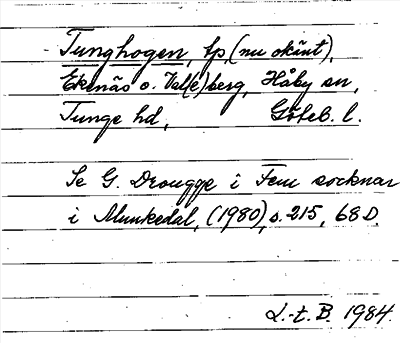 Tunghogen, tp, (nu okänt),
Ekenäs o. Val(e)berg, Håby sn,
Tunge hd, Göteb. l.
Se G. Drougge i Fem socknar
i Munkedal, (1980), s. 215, 68 D.
L.-t. B. 1984.